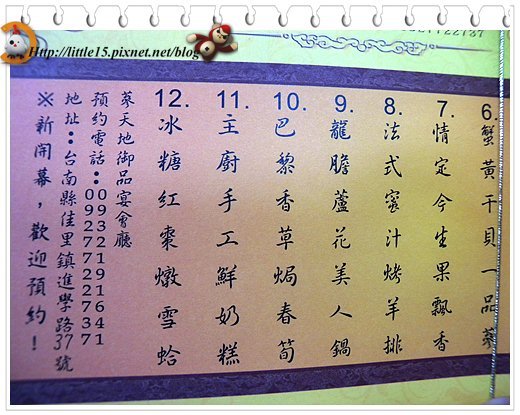 Http://little15.pixnet.net/blog
6. 蟹黃干貝一品蔘
7. 情定今生果飄香
8. 法式蜜汁烤羊排
9. 龍膽蘆花美人鍋
10. 巴黎香草焗春筍
11. 主廚手工鮮奶糕
12. 冰糖紅棗燉雪蛤
蔘天地御品宴會廳
預約電話:0932191641
0927722737
地址:台南縣佳里鎮進學路37號
※新開幕,歡迎預約!